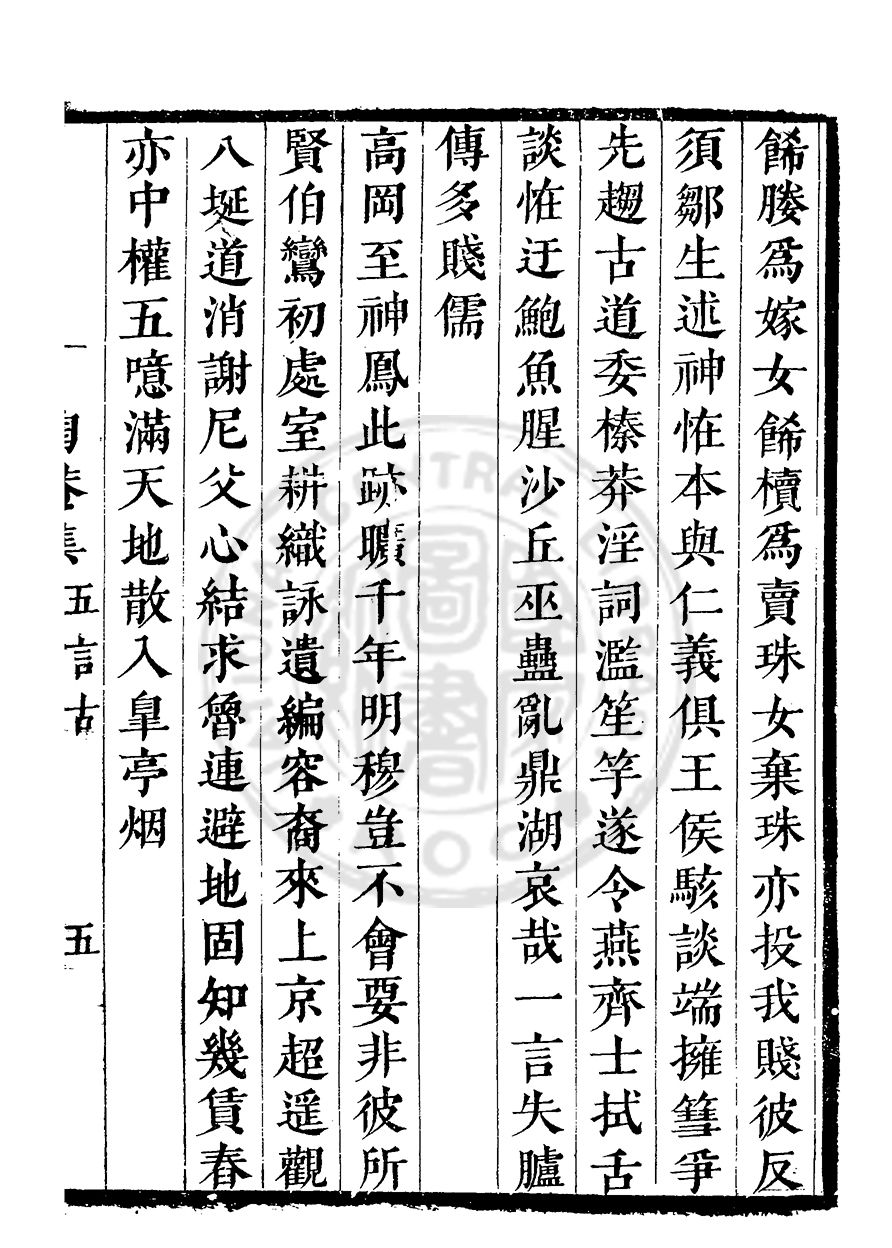 餙媵爲嫁女餙櫝爲賣珠女棄珠亦投我賤彼反
須鄒生述神恠本與仁義俱王侯駭談端擁篲爭
先趨古道委榛莽淫詞濫笙竽遂令燕齊士拭舌
談恠迂鮑魚腥沙丘巫蠱亂鼎湖哀哉一言失臚
傳多賤儒
高岡至神鳳此跡曠千年明穆豈不會要非彼所
賢伯鸞初處室耕織詠遺編容裔來上京超遥觀
八埏道消謝尼父心結求魯連避地固知幾賃舂
亦中權五噫滿天地散入皐亭烟
集 五言古 五